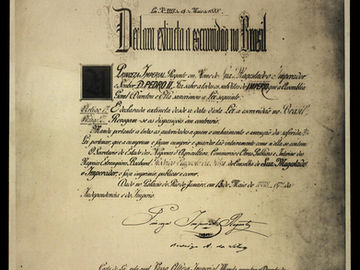 Lei N. 3353 de 13 de Maio de 1888.
Declara extincta a escravidão no Brasil
A Princeza Imperial Regente em Nome de Sua Magestade o Imperador
o Senhor D. PEDRO II, Faz saber a todos os subditos do IMPERIO que a Assembléa
Geral Decretou e Ella sanccionou a Lei seguinte:
Artigo 1º É declarada extincta desde a data desta Lei a escravidão no Brasil.
Artigo 2º Revogam-se as disposições em contrario.
Manda portanto a todas as autoridades a quem o conhecimento e execução da referida
Lei pertencer, que a cumpram e façam cumprir e guardar tão inteiramente como n'ella se contém.
O Secretario de Estado dos Negocios d'Agricultura, Commercio e Obras Publicas e Interino dos
Negocios Estrangeiros, Bacharel Rodrigo Augusto da Silva do Conselho de Sua Magestade
o Imperador, o faça imprimir, publicar e correr.
Dado no Palacio do Rio de Janeiro, em 13 de Maio de
Independencia e do Imperio.
Princeza Imperial Regente
Rodrigo A. da Silva
Carta de Lei, pela qual Vossa Alteza Imperial Manda